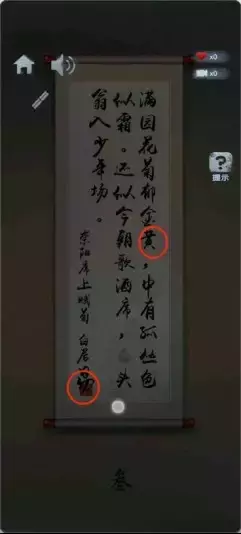 x0
x0
提示
满园花菊郁金黄，中有孤丛色
似霜。还似今朝歌酒席，头
翁入少年场。
阳席上赋菊 白居
叁